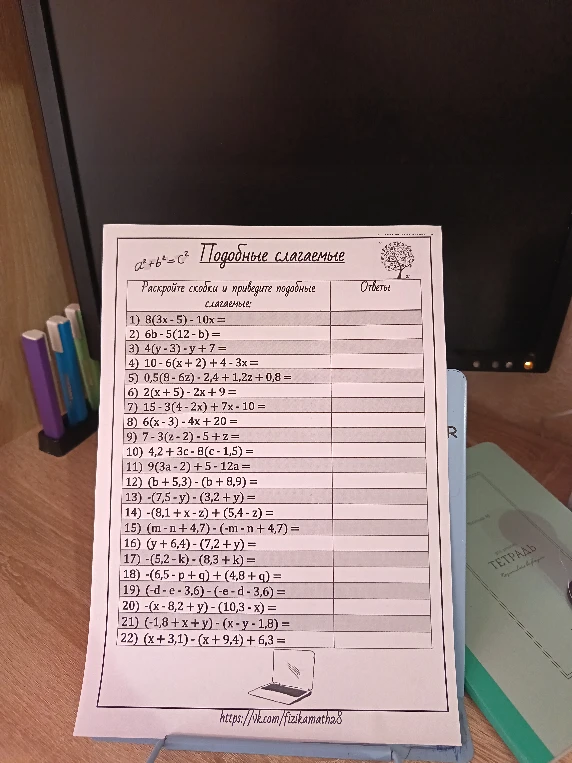 a² + b² = c²
Подобные слагаемые
Раскройте скобки и приведите подобные
слагаемые:
Ответы
1) 8(3x - 5) - 10x =
2) 6b - 5(12 - b) =
3) 4(y - 3) - y + 7 =
4) 10 - 6(x + 2) + 4 - 3x =
5) 0,5(8 - 6z) - 2,4 + 1,2z + 0,8 =
6) 2(x + 5) - 2x + 9 =
7) 15 - 3(4 - 2x) + 7x - 10 =
8) 6(x - 3) - 4x + 20 =
9) 7 - 3(z - 2) - 5 + z =
10) 4,2 + 3c - 8(c - 1,5) =
11) 9(3a - 2) + 5 - 12a =
12) (b + 5,3) - (b + 8,9) =
13) -(7,5 - y) - (3,2 + y) =
14) -(8,1 + x - z) + (5,4 - z) =
15) (m - n + 4,7) - (-m - n + 4,7) =
16) (y + 6,4) - (7,2 + y) =
17) -(5,2 - k) - (8,3 + k) =
18) -(6,5 - p + q) + (4,8 + q) =
19) (-d - e - 3,6) - (-e - d - 3,6) =
20) -(x - 8,2 + y) - (10,3 - x) =
21) (-1,8 + x + y) - (x - y - 1,8) =
22) (x + 3,1) - (x + 9,4) + 6,3 =
https://vk.com/fizikamath28
R
ТЕТРАДЬ